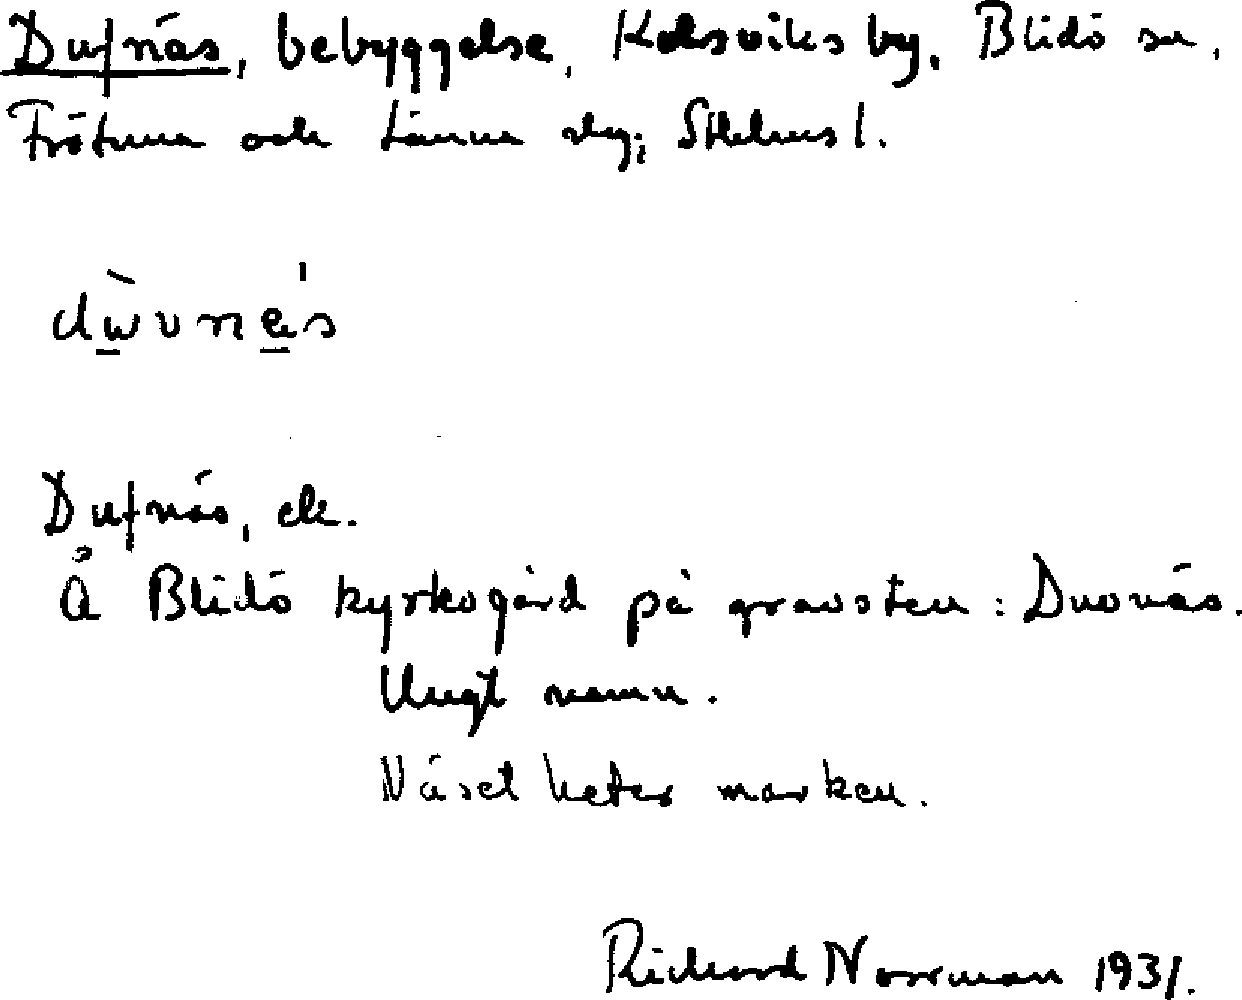 Dufnäs, bebyggelse, Kolsviks by, Blidö sn,
Frötuna och Länna skg; Sthlms l.
dù̲vnä̲́s
Dufnäs, ek.
Å Blidö kyrkogård på gravsten: Duvnäs.
Ungt namn.
Näset heter marken.
Richard Norrman 1931.